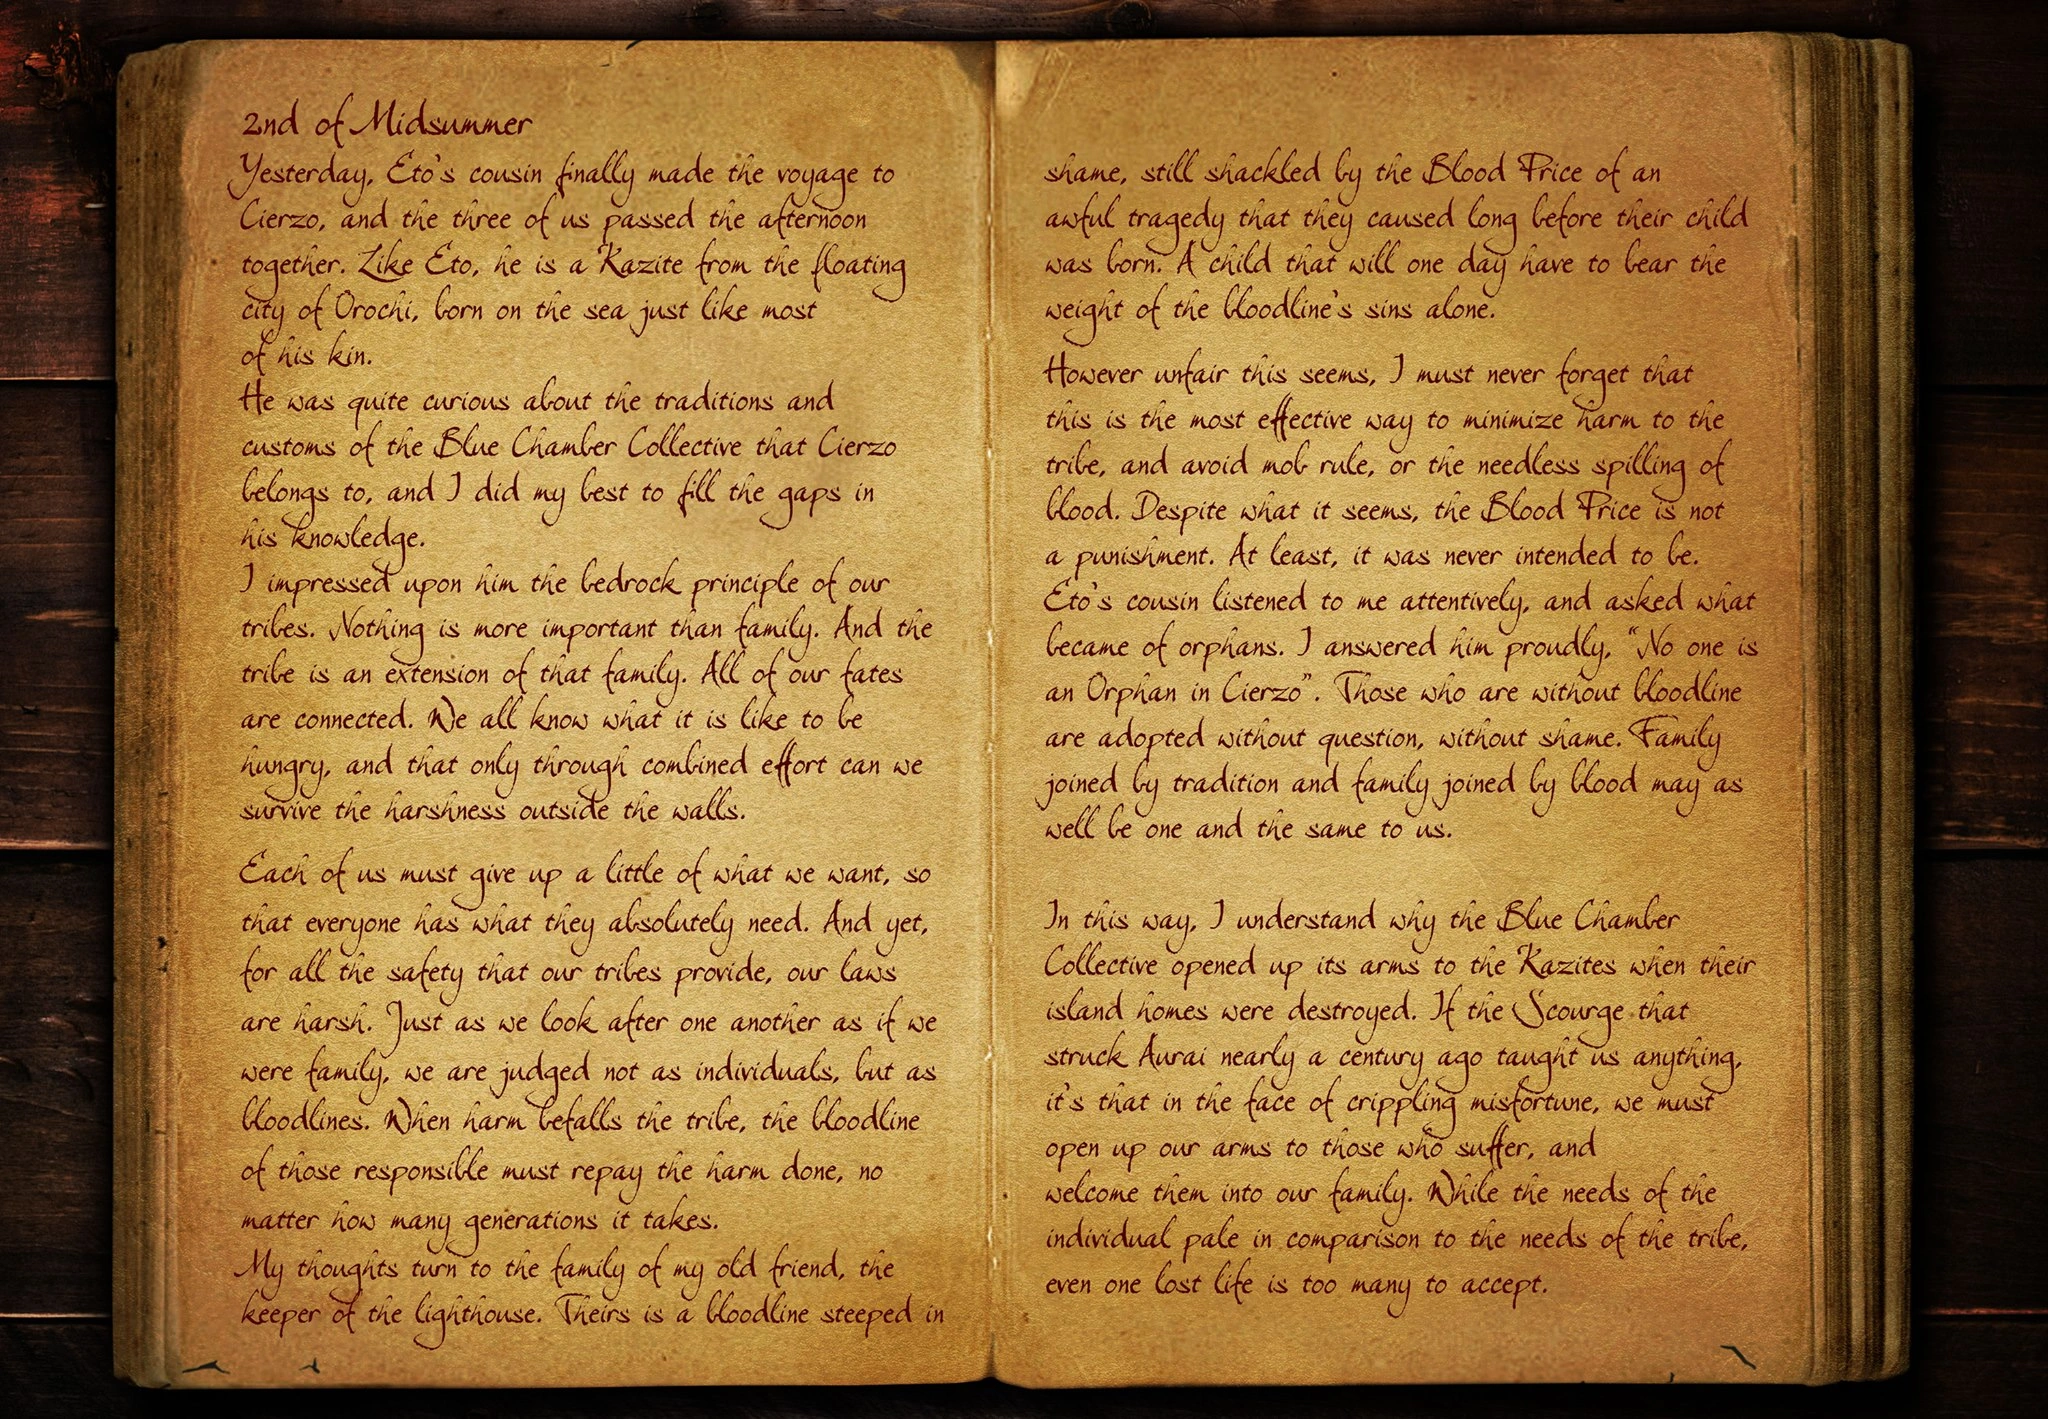 2nd of Midsummer
Yesterday, Eto's cousin finally made the voyage to
Cierzo, and the three of us passed the afternoon
together. Like Eto, he is a Kazite from the floating
city of Orochi, born on the sea just like most
of his kin.
He was quite curious about the traditions and
customs of the Blue Chamber Collective that Cierzo
belongs to, and I did my best to fill the gaps in
his knowledge.
I impressed upon him the bedrock principle of our
tribes. Nothing is more important than family. And the
tribe is an extension of that family. All of our fates
are connected. We all know what it is like to be
hungry, and that only through combined effort can we
survive the harshness outside the walls.
Each of us must give up a little of what we want, so
that everyone has what they absolutely need. And yet,
for all the safety that our tribes provide, our laws
are harsh. Just as we look after one another as if we
were family, we are judged not as individuals, but as
bloodlines. When harm befalls the tribe, the bloodline
of those responsible must repay the harm done, no
matter how many generations it takes.
My thoughts turn to the family of my old friend, the
keeper of the lighthouse. Theirs is a bloodline steeped in
shame, still shackled by the Blood Price of an
awful tragedy that they caused long before their child
was born. A child that will one day have to bear the
weight of the bloodline's sins alone.
However unfair this seems, I must never forget that
this is the most effective way to minimize harm to the
tribe, and avoid mob rule, or the needless spilling of
blood. Despite what it seems, the Blood Price is not
a punishment. At least, it was never intended to be.
Eto's cousin listened to me attentively, and asked what
became of orphans. I answered him proudly, "No one is
an Orphan in Cierzo". Those who are without bloodline
are adopted without question, without shame. Family
joined by tradition and family joined by blood may as
well be one and the same to us.
In this way, I understand why the Blue Chamber
Collective opened up its arms to the Kazites when their
island homes were destroyed. If the Scourge that
struck Aurai nearly a century ago taught us anything,
it's that in the face of crippling misfortune, we must
open up our arms to those who suffer, and
welcome them into our family. While the needs of the
individual pale in comparison to the needs of the tribe,
even one lost life is too many to accept.